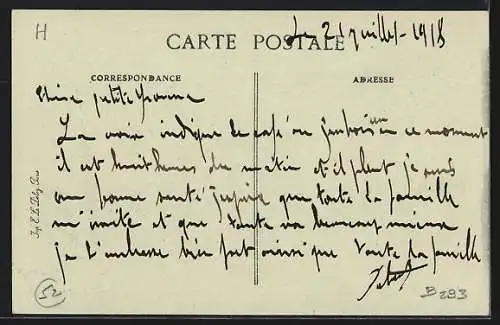 H
Le 21 juillet 1918
CARTE POSTALE
CORRESPONDANCE
ADRESSE
Chère petite Yvonne
La croix indique le café ou j'en bois un en ce moment
il est huit heures du matin et il pleut je suis
en bonne santé j'espère que toute la famille
m'imite et que tout va beaucoup mieux
je t'embrasse bien fort ainsi que toute la famille
Imp. E. Le Deley, Paris
52
B 293